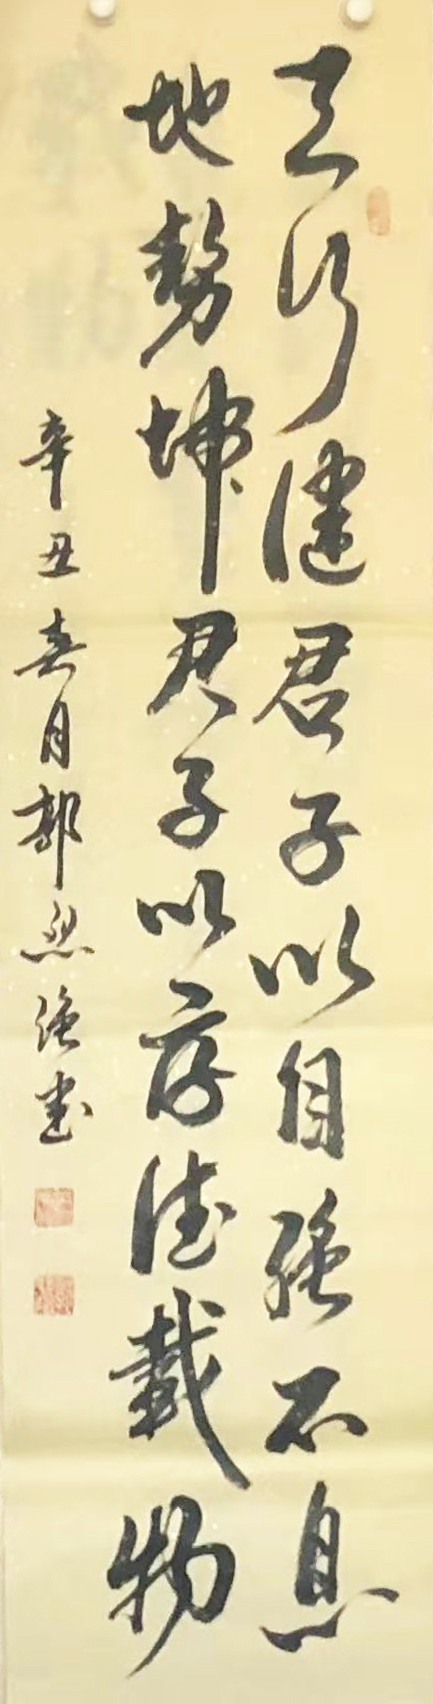 天行健君子以自强不息
地势坤君子以厚德载物
辛丑春月郭烈强书